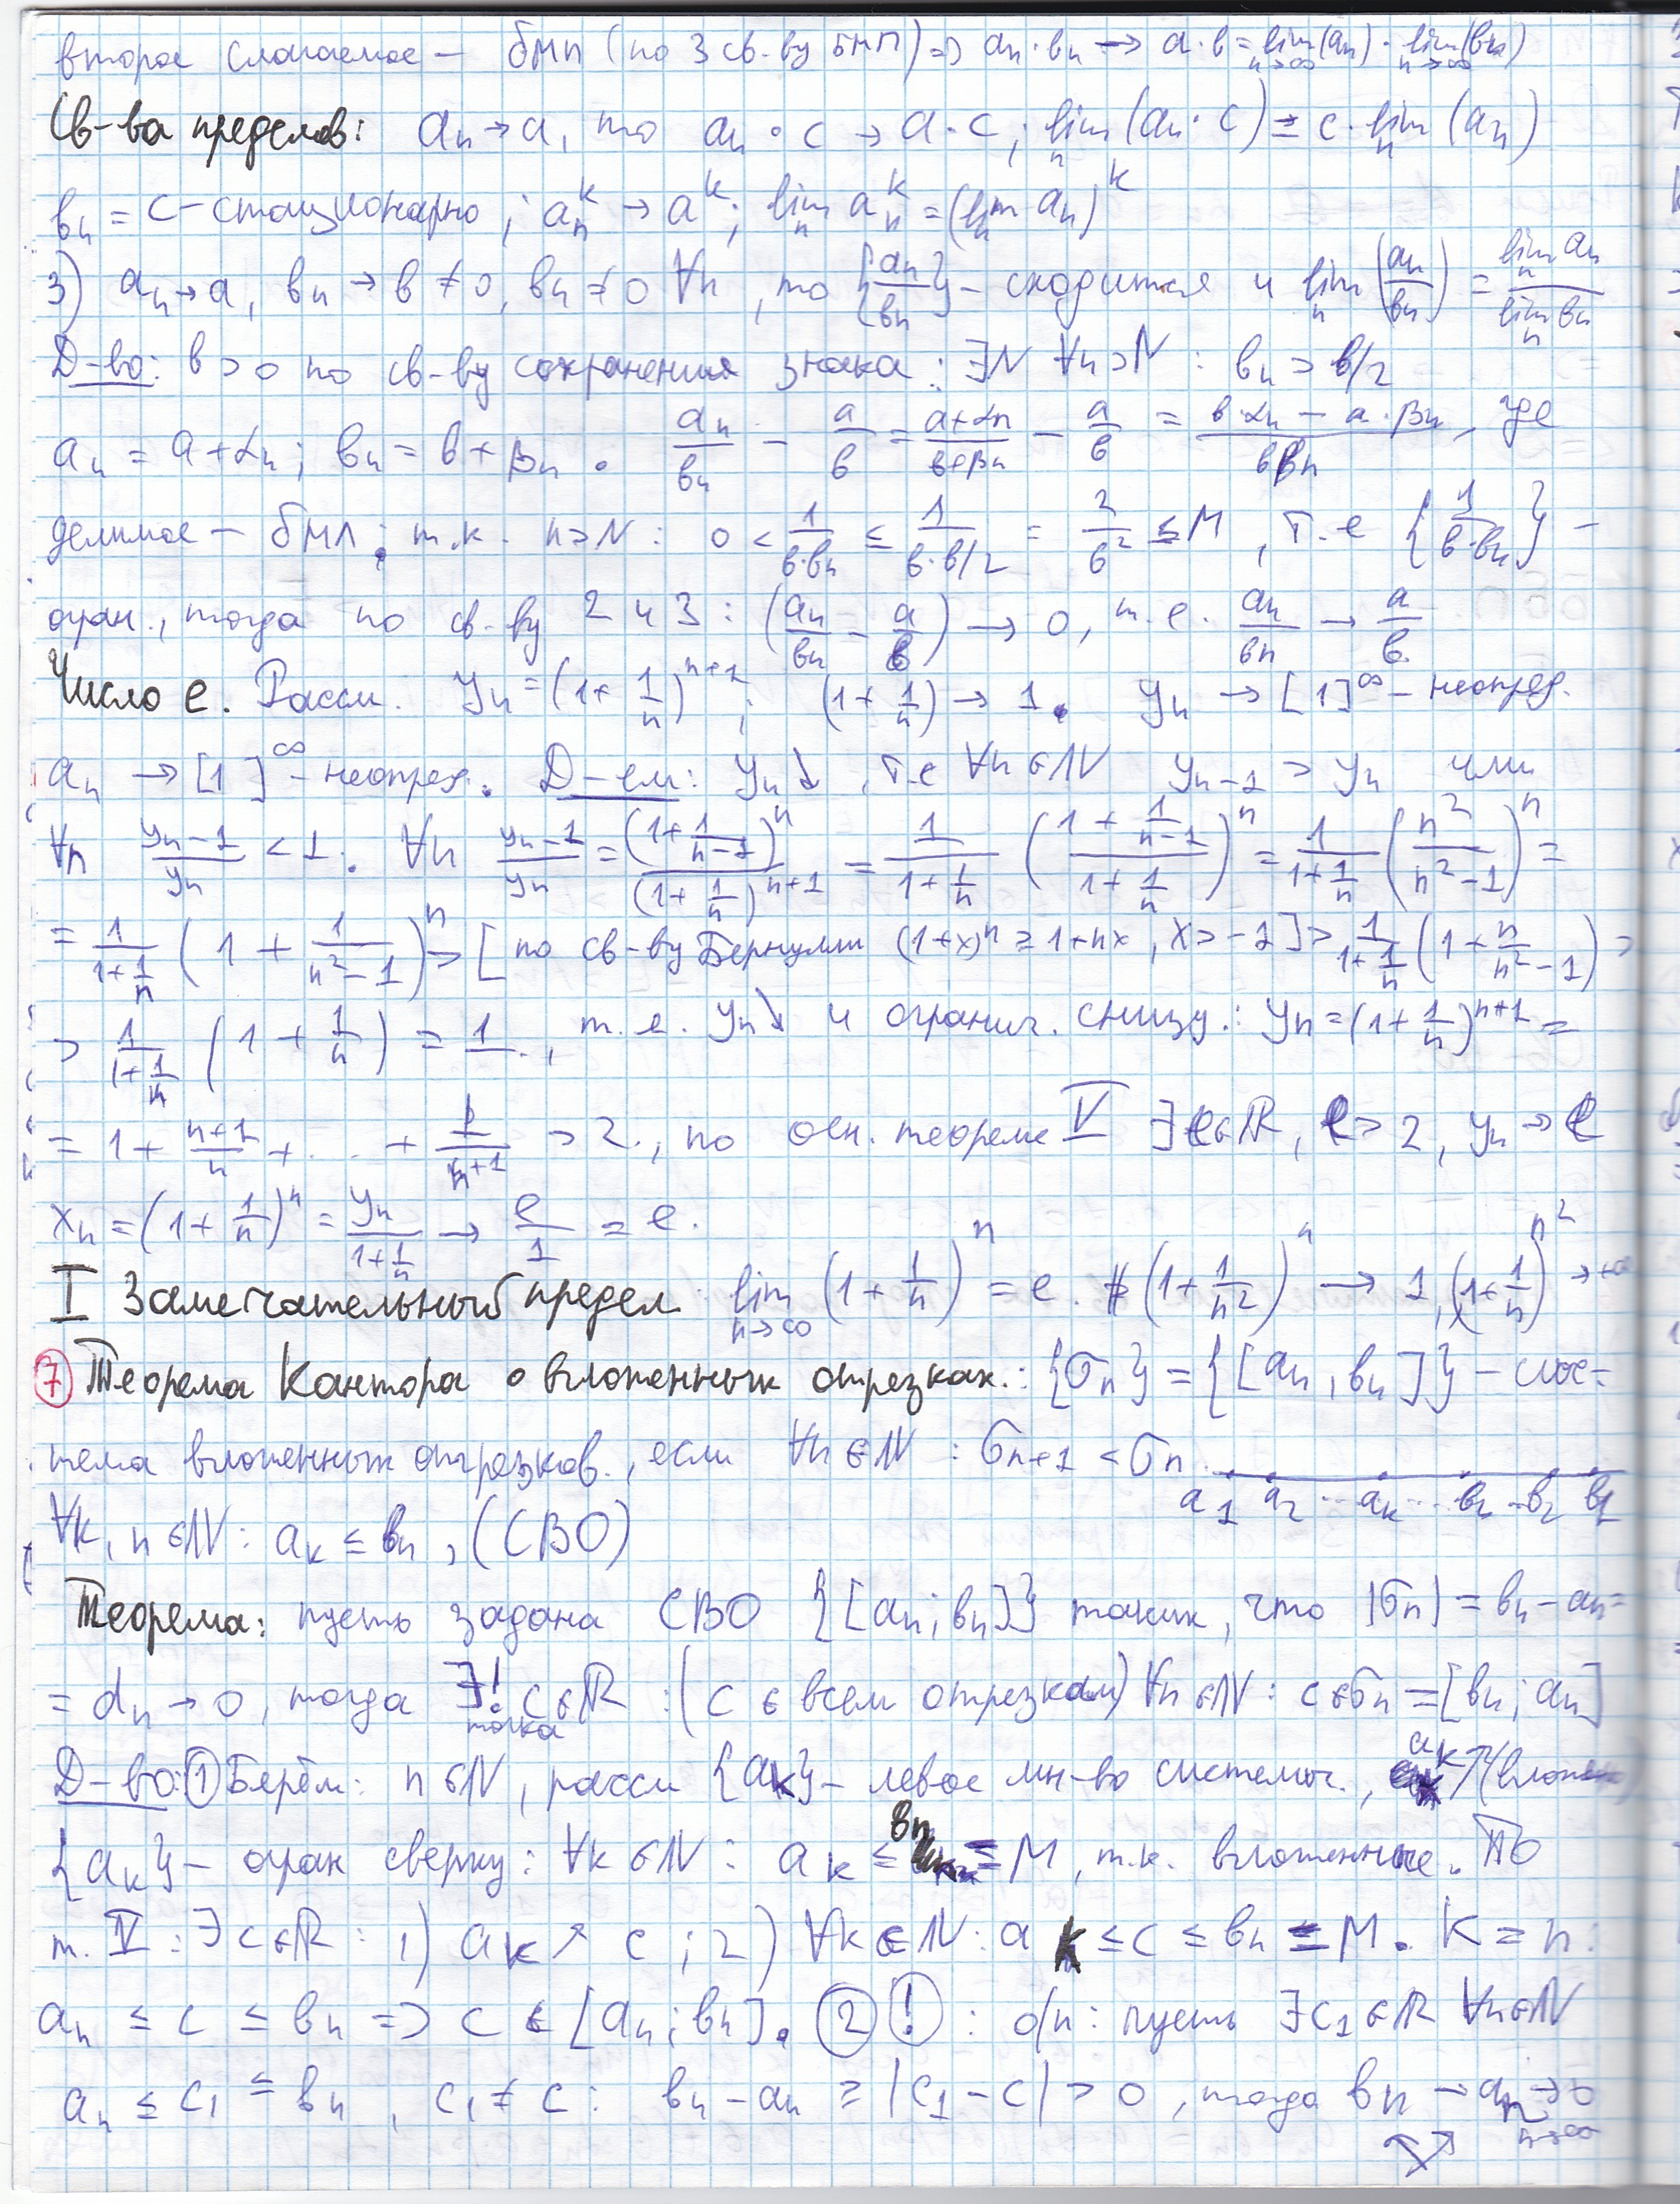 второе слагаемое – бмп (по 3 св-ву бмп) => aₙ·bₙ → a·b = lim(aₙ)·lim(bₙ) n→∞ n→∞
Св-ва пределов: aₙ→a, то aₙ·c → a·c; lim(aₙ·c) = c·lim(aₙ)
bₙ = c – стационарно; aₙᵏ → aᵏ; lim aₙᵏ = (lim aₙ)ᵏ
3) aₙ→a, bₙ→b≠0, bₙ≠0 ∀n, то {aₙ/bₙ} – сходится и lim(aₙ/bₙ) = lim aₙ / lim bₙ
Д-во: b>0 по св-ву сохранения знака: ∃N ∀n>N : bₙ > b/2
aₙ = a+αₙ; bₙ = b+βₙ. aₙ/bₙ – a/b = (a+αₙ)/(b+βₙ) – a/b = (b·αₙ – a·βₙ)/(b bₙ), где
делимое – бмп; т.к. n>N : 0 < 1/(b·bₙ) ≤ 1/(b·b/2) = 2/b² ≤ M, т.е {1/(b·bₙ)} –
огран., тогда по св-ву 2 и 3: (aₙ/bₙ – a/b) → 0, т.е. aₙ/bₙ → a/b.
Число e. Рассм. yₙ = (1+1/n)ⁿ⁺¹; (1+1/n) → 1. yₙ → [1]^∞ – неопред.
aₙ → [1]^∞ – неопред. Д-ем: yₙ↓, т.е ∀n∈ℕ yₙ₋₁ > yₙ или
∀n yₙ₋₁/yₙ < 1. ∀n yₙ₋₁/yₙ = (1+1/(n-1))ⁿ/(1+1/n)ⁿ⁺¹ = 1/(1+1/n) ((1+1/(n-1))/(1+1/n))ⁿ = 1/(1+1/n) (n²/(n²-1))ⁿ =
= 1/(1+1/n) (1 + 1/(n²-1))ⁿ > [по св-ву Бернулли (1+x)ⁿ ≥ 1+nx, x>-1] > 1/(1+1/n) (1+n/(n²-1)) >
> 1/(1+1/n) (1+1/n) = 1, т.е. yₙ↓ и огранич. снизу: yₙ = (1+1/n)ⁿ⁺¹ =
= 1 + (n+1)/n + ... + 1/nⁿ⁺¹ > 2, по осн. теореме V ∃e∈ℝ, e>2, yₙ→e
xₙ = (1+1/n)ⁿ = yₙ/(1+1/n) → e/1 = e.
I Замечательный предел lim n→∞ (1+1/n)ⁿ = e. (1+1/n²)ⁿ → 1, (1+1/n)^n² → +∞
7 Теорема Кантора о вложенных отрезках.: {σₙ} = {[aₙ, bₙ]} – сис-
тема вложенных отрезков, если ∀n∈ℕ : σₙ₊₁ < σₙ. a₁ a₂ ... aₙ ... bₙ .. b₂ b₁
∀k, n∈ℕ : aₖ ≤ bₙ, (СВО)
Теорема: пусть задана СВО {[aₙ; bₙ]} таких, что |σₙ| = bₙ – aₙ =
= dₙ → 0, тогда ∃! точка c∈ℝ : (c ∈ всем отрезкам) ∀n∈ℕ : c∈σₙ = [bₙ; aₙ]
Д-во: ① Берём: n∈ℕ, рассм {aₖ} – левое мн-во системы, aₖ ↑
{aₖ} – огран сверху: ∀k∈ℕ : aₖ ≤ bₙ ≤ M, т.к. вложенные. По
т. V : ∃c∈ℝ : 1) aₖ ↗ c; 2) ∀k∈ℕ: aₖ ≤ c ≤ bₙ ≤ M. K = n:
aₙ ≤ c ≤ bₙ => c ∈ [aₙ; bₙ]. ② ! : о/п: пусть ∃c₁∈ℝ ∀n∈ℕ
aₙ ≤ c₁ ≤ bₙ, c₁ ≠ c : bₙ – aₙ ≥ |c₁ – c| > 0, тогда bₙ – aₙ → 0 n→∞